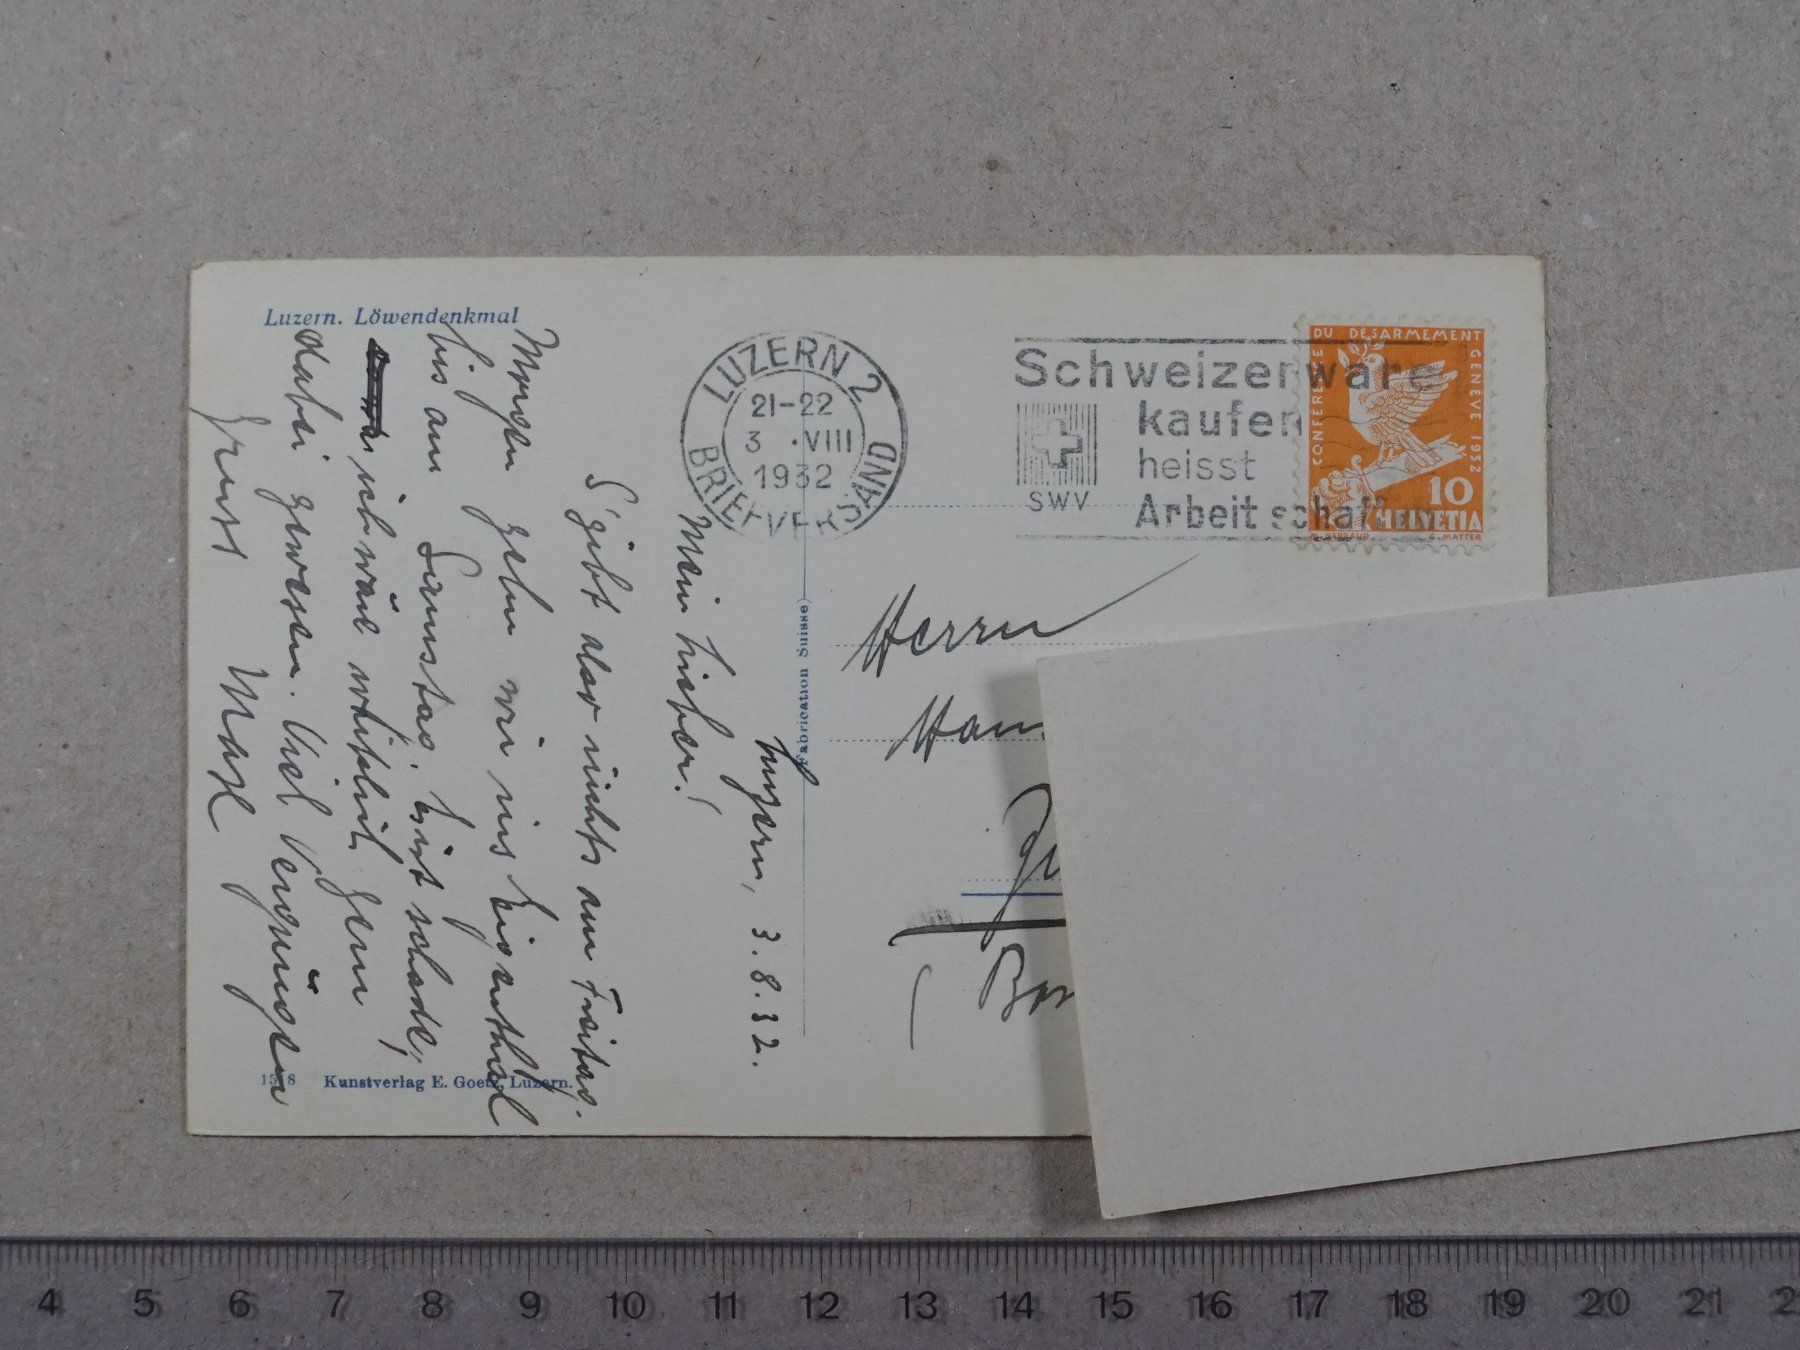 Luzern. Löwendenkmal
LUZERN 2
21-22
3 ·VIII
1932
BRIEFVERSAND
Schweizerware
kaufen
heisst
Arbeit schaffen
SWV
CONFÉRENCE DU DÉSARMEMENT GENÈVE 1932
10
HELVETIA
M. BARRAUD
G. MATTER
Luzern, 3.8.32.
Mein Lieber!
S'gibt also nichts am Freitag.
Morgen gehn wir ins Eigenthal
bis am Samstag. Es ist schade,
ich wäre wirklich gern
dabei gewesen. Viel Vergnügen
Gruss Max
Herrn
Fabrication Suisse
1518 Kunstverlag E. Goetz, Luzern.
4 5 6 7 8 9 10 11 12 13 14 15 16 17 18 19 20 21